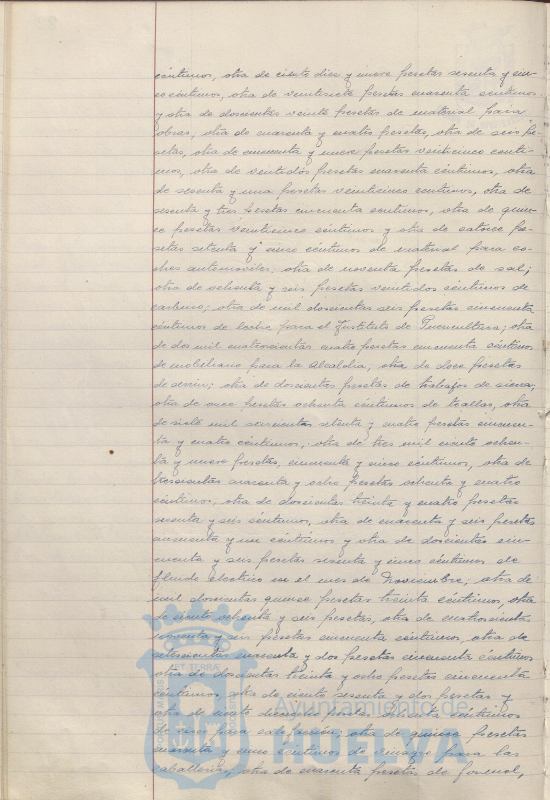 céntimos, otra de ciento diez y nueve pesetas sesenta y cin-
co céntimos, otra de veintisiete pesetas cuarenta céntimos
y otra de doscientas veinte pesetas de material para
obras, otra de cuarenta y cuatro pesetas, otra de seis pe-
setas, otra de cincuenta y nueve pesetas veinticinco cénti-
mos, otra de veintidós pesetas cuarenta céntimos, otra
de sesenta y una pesetas veinticinco céntimos, otra de
sesenta y tres pesetas cincuenta céntimos, otra de quin-
ce pesetas veinticinco céntimos y otra de catorce pe-
setas setenta y cinco céntimos de material para co-
ches automóviles, otra de noventa pesetas de sal;
otra de ochenta y seis pesetas veintidos céntimos de
carburo; otra de mil doscientas seis pesetas cincuenta
céntimos de leche para el Instituto de Puericultura; otra
de dos mil cuatrocientas cuatro pesetas cincuenta céntimos
de mobiliario para la Alcaldía, otra de doce pesetas
de serrín; otra de doscientas pesetas de trabajos de siega,
otra de once pesetas ochenta céntimos de toallas, otra
de siete mil seiscientas setenta y cuatro pesetas cincuen-
ta y cuatro céntimos, otra de tres mil ciento ochen-
ta y nueve pesetas, cincuenta y cinco céntimos, otra de
trescientas cuarenta y ocho pesetas ochenta y cuatro
céntimos, otra de doscientas treinta y cuatro pesetas
sesenta y seis céntimos, otra de cuarenta y seis pesetas
cuarenta y un céntimos y otra de doscientas cin-
cuenta y seis pesetas sesenta y cinco céntimos de
fluido eléctrico en el mes de Noviembre; otra de
mil doscientas quince pesetas treinta céntimos, otra
de ciento ochenta y seis pesetas, otra de cuatrocientas
cincuenta y seis pesetas cincuenta céntimos, otra de
setecientas cuarenta y dos pesetas cincuenta céntimos
otra de doscientas treinta y ocho pesetas cincuenta
céntimos, otra de ciento sesenta y dos pesetas y
otra de ciento dieciocho pesetas ochenta céntimos
de cisco para calefacción; otra de quince pesetas
cuarenta y cinco céntimos de vinagre para las
caballerías; otra de cuarenta pesetas de forenol,
Ayuntamiento de
HUELVA